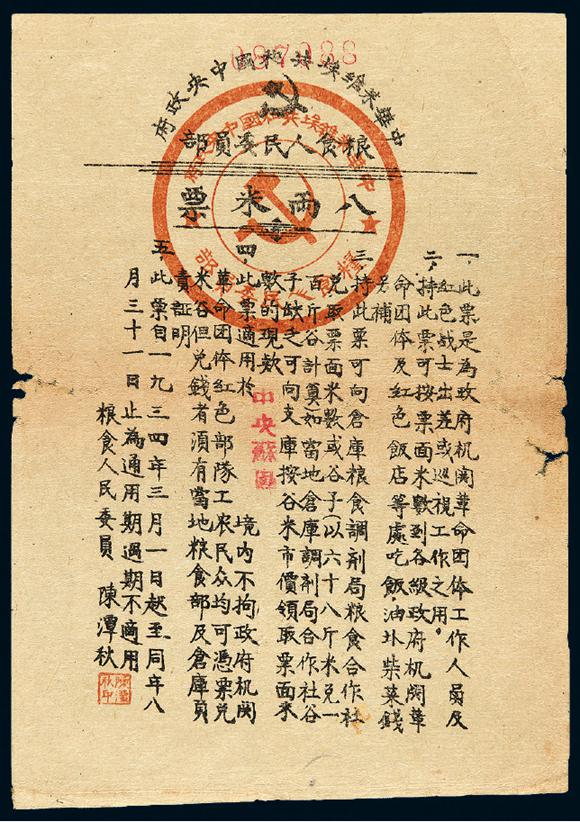 087988
中華蘇維埃共和國中央政府
粮食人民委員部
八兩米票
中華蘇維埃共和國中央政府
糧食人民委員部
一、此票是為政府机関革命团体工作人員及
红色战士出差或巡視工作之用。
二、持此票可按票面米數到各级政府机関革
命团体及红色飯店等處吃飯，油圤柴菜錢
另補
三、持此票可向倉庫粮食調剂局粮食合作社
兑取票面米數或谷子(以六十八斤米兑一
百斤谷計算)如當地倉庫調剂局合作社谷
子缺乏可向支庫按谷米市價領取票面米
數的現款
四、此票適用於 中央蘇區 境内不拘政府机関
革命团体红色部隊工农民众均可憑票兑
米谷但兑錢者須有當地粮食部及倉庫負
責証明
五、此票自一九三四年三月一日起至同年八
月三十一日止為通用期過期不適用
粮食人民委員 陳潭秋
陳潭秋印